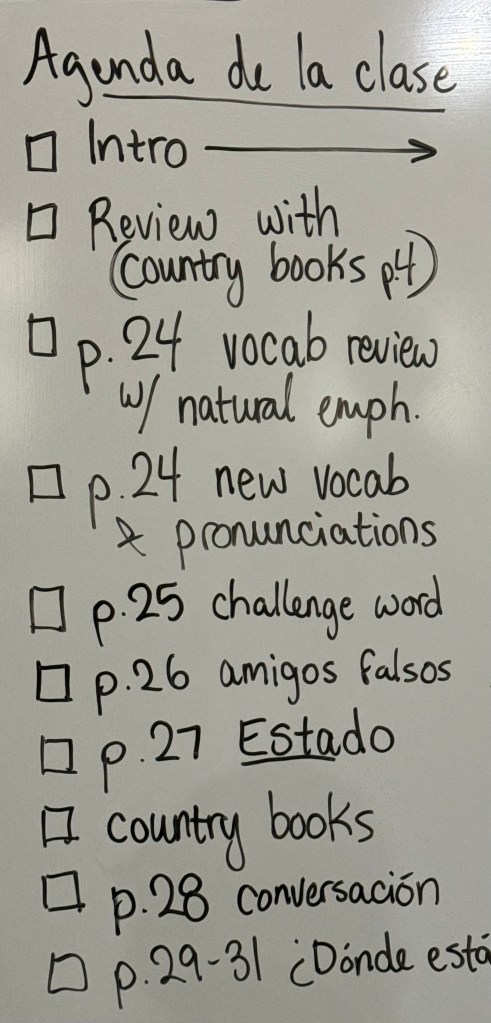 Agenda de la clase
□ Intro →
□ Review with
(country books p.4)
□ p.24 vocab review
w/ natural emph.
□ p.24 new vocab
& pronunciations
□ p.25 challenge word
□ p.26 amigos falsos
□ p.27 Estado
□ country books
□ p.28 conversación
□ p.29-31 ¿Dónde está